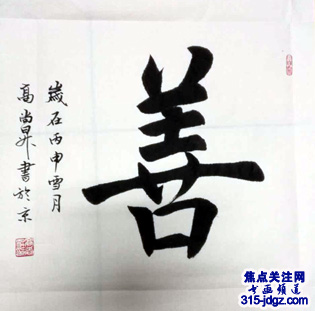 善
歲在丙申雪月
高尚昇書於京
焦点关注网
书画频道
315-jdgz.com